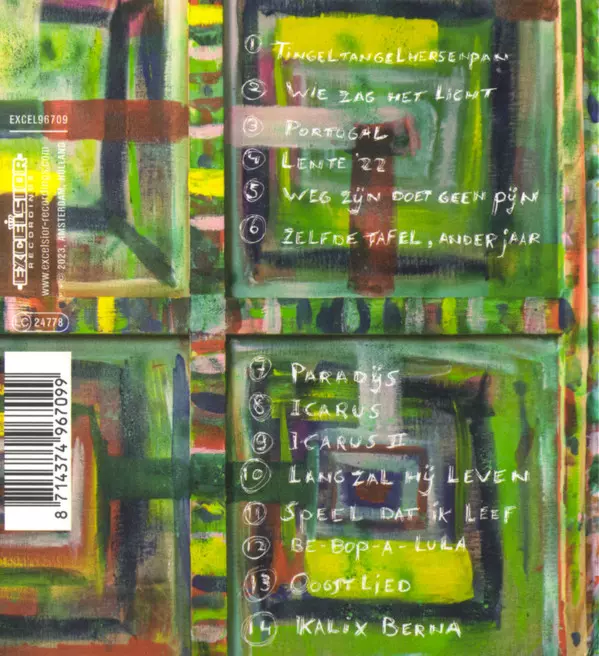 1 TINGELTANGELHERSENPAN
2 WIE ZAG HET LICHT
3 PORTUGAL
4 LENTE '22
5 WEG ZIJN DOET GEEN PIJN
6 ZELFDE TAFEL, ANDER JAAR
7 PARADIJS
8 ICARUS
9 ICARUS II
10 LANG ZAL HIJ LEVEN
11 SPEEL DAT IK LEEF
12 BE-BOP-A-LULA
13 OOGSTLIED
14 KALIX BERNA
EXCEL96709
EXCELSIOR
RECORDINGS
www.excelsior-recordings.com
© 2023, AMSTERDAM, HOLLAND
LC 24778
8 714374 967099